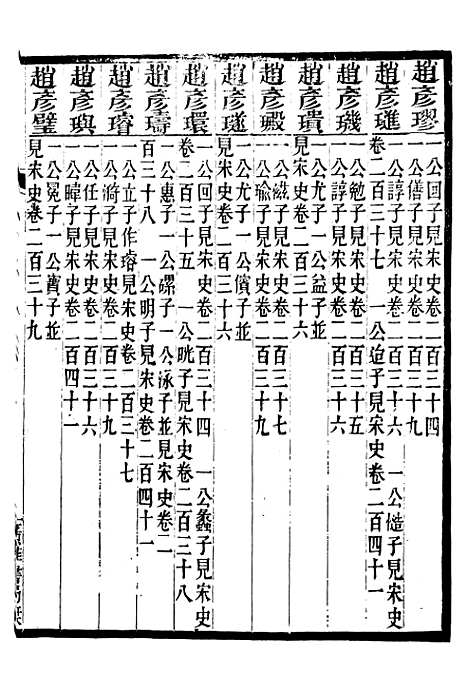 趙彥璆 一公回子見宋史卷二百三十四
一公僐子見宋史卷二百三十九
趙彥璡 一公諄子見宋史卷二百三十六 一公慥子見宋史
卷二百三十七 一公追子見宋史卷二百四十一
趙彥璣 一公勉子見宋史卷二百三十五
一公諄子見宋史卷二百三十六
趙彥璝 一公尤子一公益子並
見宋史卷二百三十六
趙彥 一公滋子見宋史卷二百三十七
一公瑜子見宋史卷二百三十九
趙彥璲 一公尤子一公儐子並
見宋史卷二百三十六
趙彥環 一公回子見宋史卷二百三十四 一公蠡子見宋史
卷二百三十五 一公晄子見宋史卷二百三十八
趙彥璹 一公惠子一公 子一公泳子並見宋史卷二
百三十八 一公明子見宋史卷二百四十一
趙彥璿 一公立子作璿見宋史卷二百三十七
一公漪子見宋史卷二百三十九
趙彥璵 一公任子見宋史卷二百三十六
一公暐子見宋史卷二百四十一
趙彥璧 一公冕子一公 子並
見宋史卷二百三十九